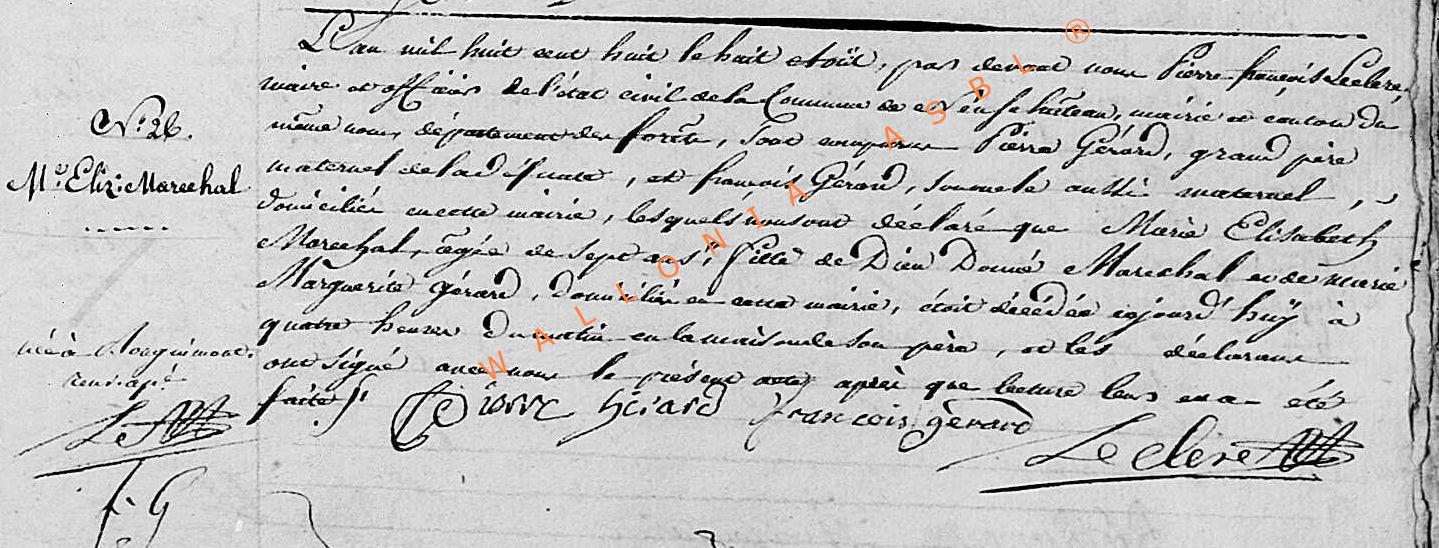 N.° 26.
M.e Eliz: Marechal
née à
renvi apé
Le
f. G
L'an mil huit cent huit le huit août, par devant nous Pierre françois Leclere,
maire et officier de l'état civil de la Commune de Neufchateau, mairie et canton du
même nom, département des forêts, sont comparu Pierre Gérard, grand père
maternel de la défunte, et françois Gérard, son oncle aussi maternel,
domiciliés en cette mairie, lesquels nous ont déclaré que Marie Elisabeth
Marechal, agée de sept ans, fille de Dieu Donné Marechal et de marie
Marguerite Gérard, domiciliés en cette mairie, étoit décédée aujourd'huy à
quatre heures du matin en la maison de son père, et les déclarans
ont signé avec nous le présent acte, après que lecture leur en a été
faite ./.
Pierre Gérard françois gérard
Leclere
WALLONIA ASBL ®